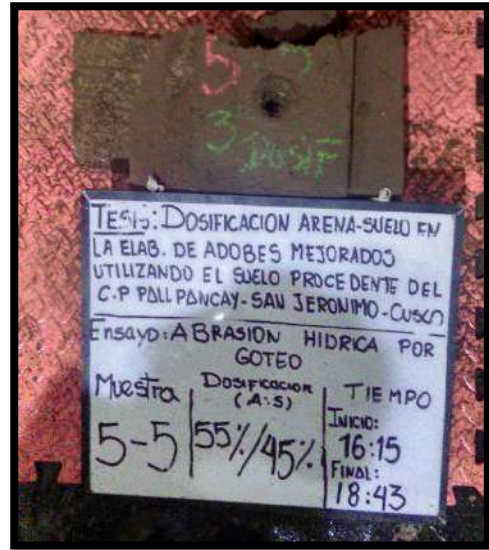 5 5
3 DOSIF
TESIS: DOSIFICACION ARENA-SUELO EN
LA ELAB. DE ADOBES MEJORADOS
UTILIZANDO EL SUELO PROCEDENTE DEL
C.P PALLPANCAY-SAN JERONIMO-CUSCO
Ensayo: ABRASION HIDRICA POR
GOTEO
Muestra
5-5
DOSIFICACION
(A:S)
55%/45%
TIEMPO
INICIO:
16:15
FINAL:
18:43